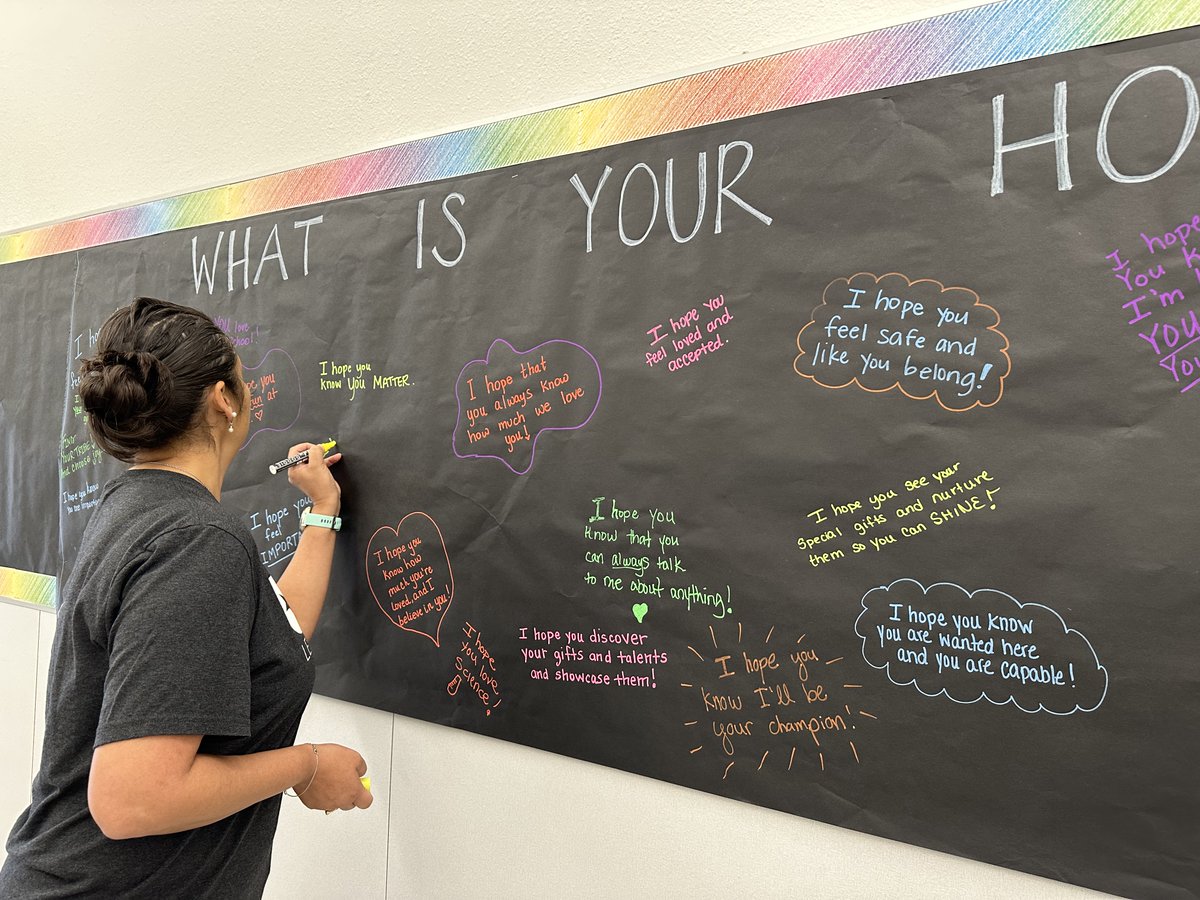 WHAT IS YOUR HO
I hope
feel
YOUR TRIBE
and choose joy
I hope you know
you are important
YOU love
hope you
fun at
I hope you
know YOU MATTER.
I hope you
feel
IMPORTANT
I hope that
you always know
how much we love
you!
I hope you
feel loved and
accepted.
I hope you
feel safe and
like you belong!
I hope
You K
I'm
YOU
You
I hope you
know how
much you're
loved, and I
believe in you!
I hope
you love
science!
I hope you
know that you
can always talk
to me about anything!
I hope you discover
your gifts and talents
and showcase them!
I hope you see your
special gifts and nurture
them so you can SHINE!
I hope you
know I'll be
your champion!
I hope you know
you are wanted here
and you are capable!